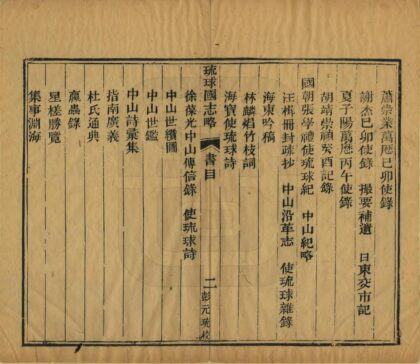 蕭崇業萬厯己卯使錄
謝杰己卯使錄　撮要補遺　日東交市記
夏子陽萬厯丙午使錄
胡靖崇禎癸酉記錄
國朝張學禮使琉球紀　中山紀略
汪楫冊封疏抄　中山沿革志　使琉球雜錄
海東吟稿
林麟焻竹枝詞
海寶使琉球詩
徐葆光中山傳信錄　使琉球詩
琉球國志略　書目　二　彭元珫校
中山世纘圖
中山世鑑
中山詩彙集
指南廣義
杜氏通典
瀛蟲錄
星槎勝覽
集事淵海